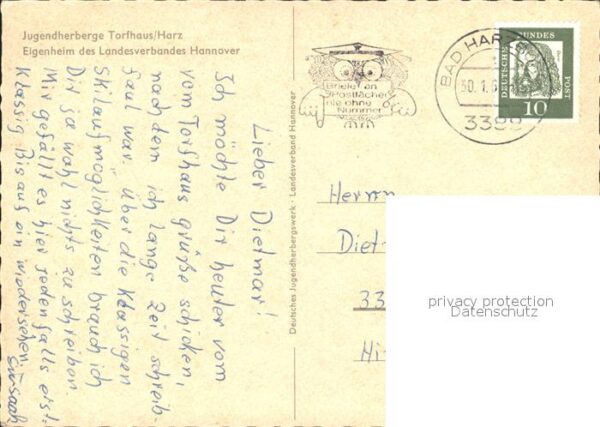 Jugendherberge Torfhaus/Harz
Eigenheim des Landesverbandes Hannover
Lieber Dietmar!
Ich möchte Dir heute vom
vom Torfhaus grüße schicken,
nachdem ich lange Zeit schreib-
faul war. Über die klassigen
Skilaufmöglichkeiten brauch ich
Dir ja wohl nichts zu schreiben.
Mir gefällt es hier jedenfalls erst-
klassig. Bis auf ein wiedersehen
Deutsches Jugendherbergswerk · Landesverband Hannover
Briefe an
Postfächer
nie ohne
Nummer
BAD HARZ
30.1.6
3388
DEUTSCHE BUNDESPOST
10
Herrn
Diet
33
Hi
privacy protection
Datenschutz